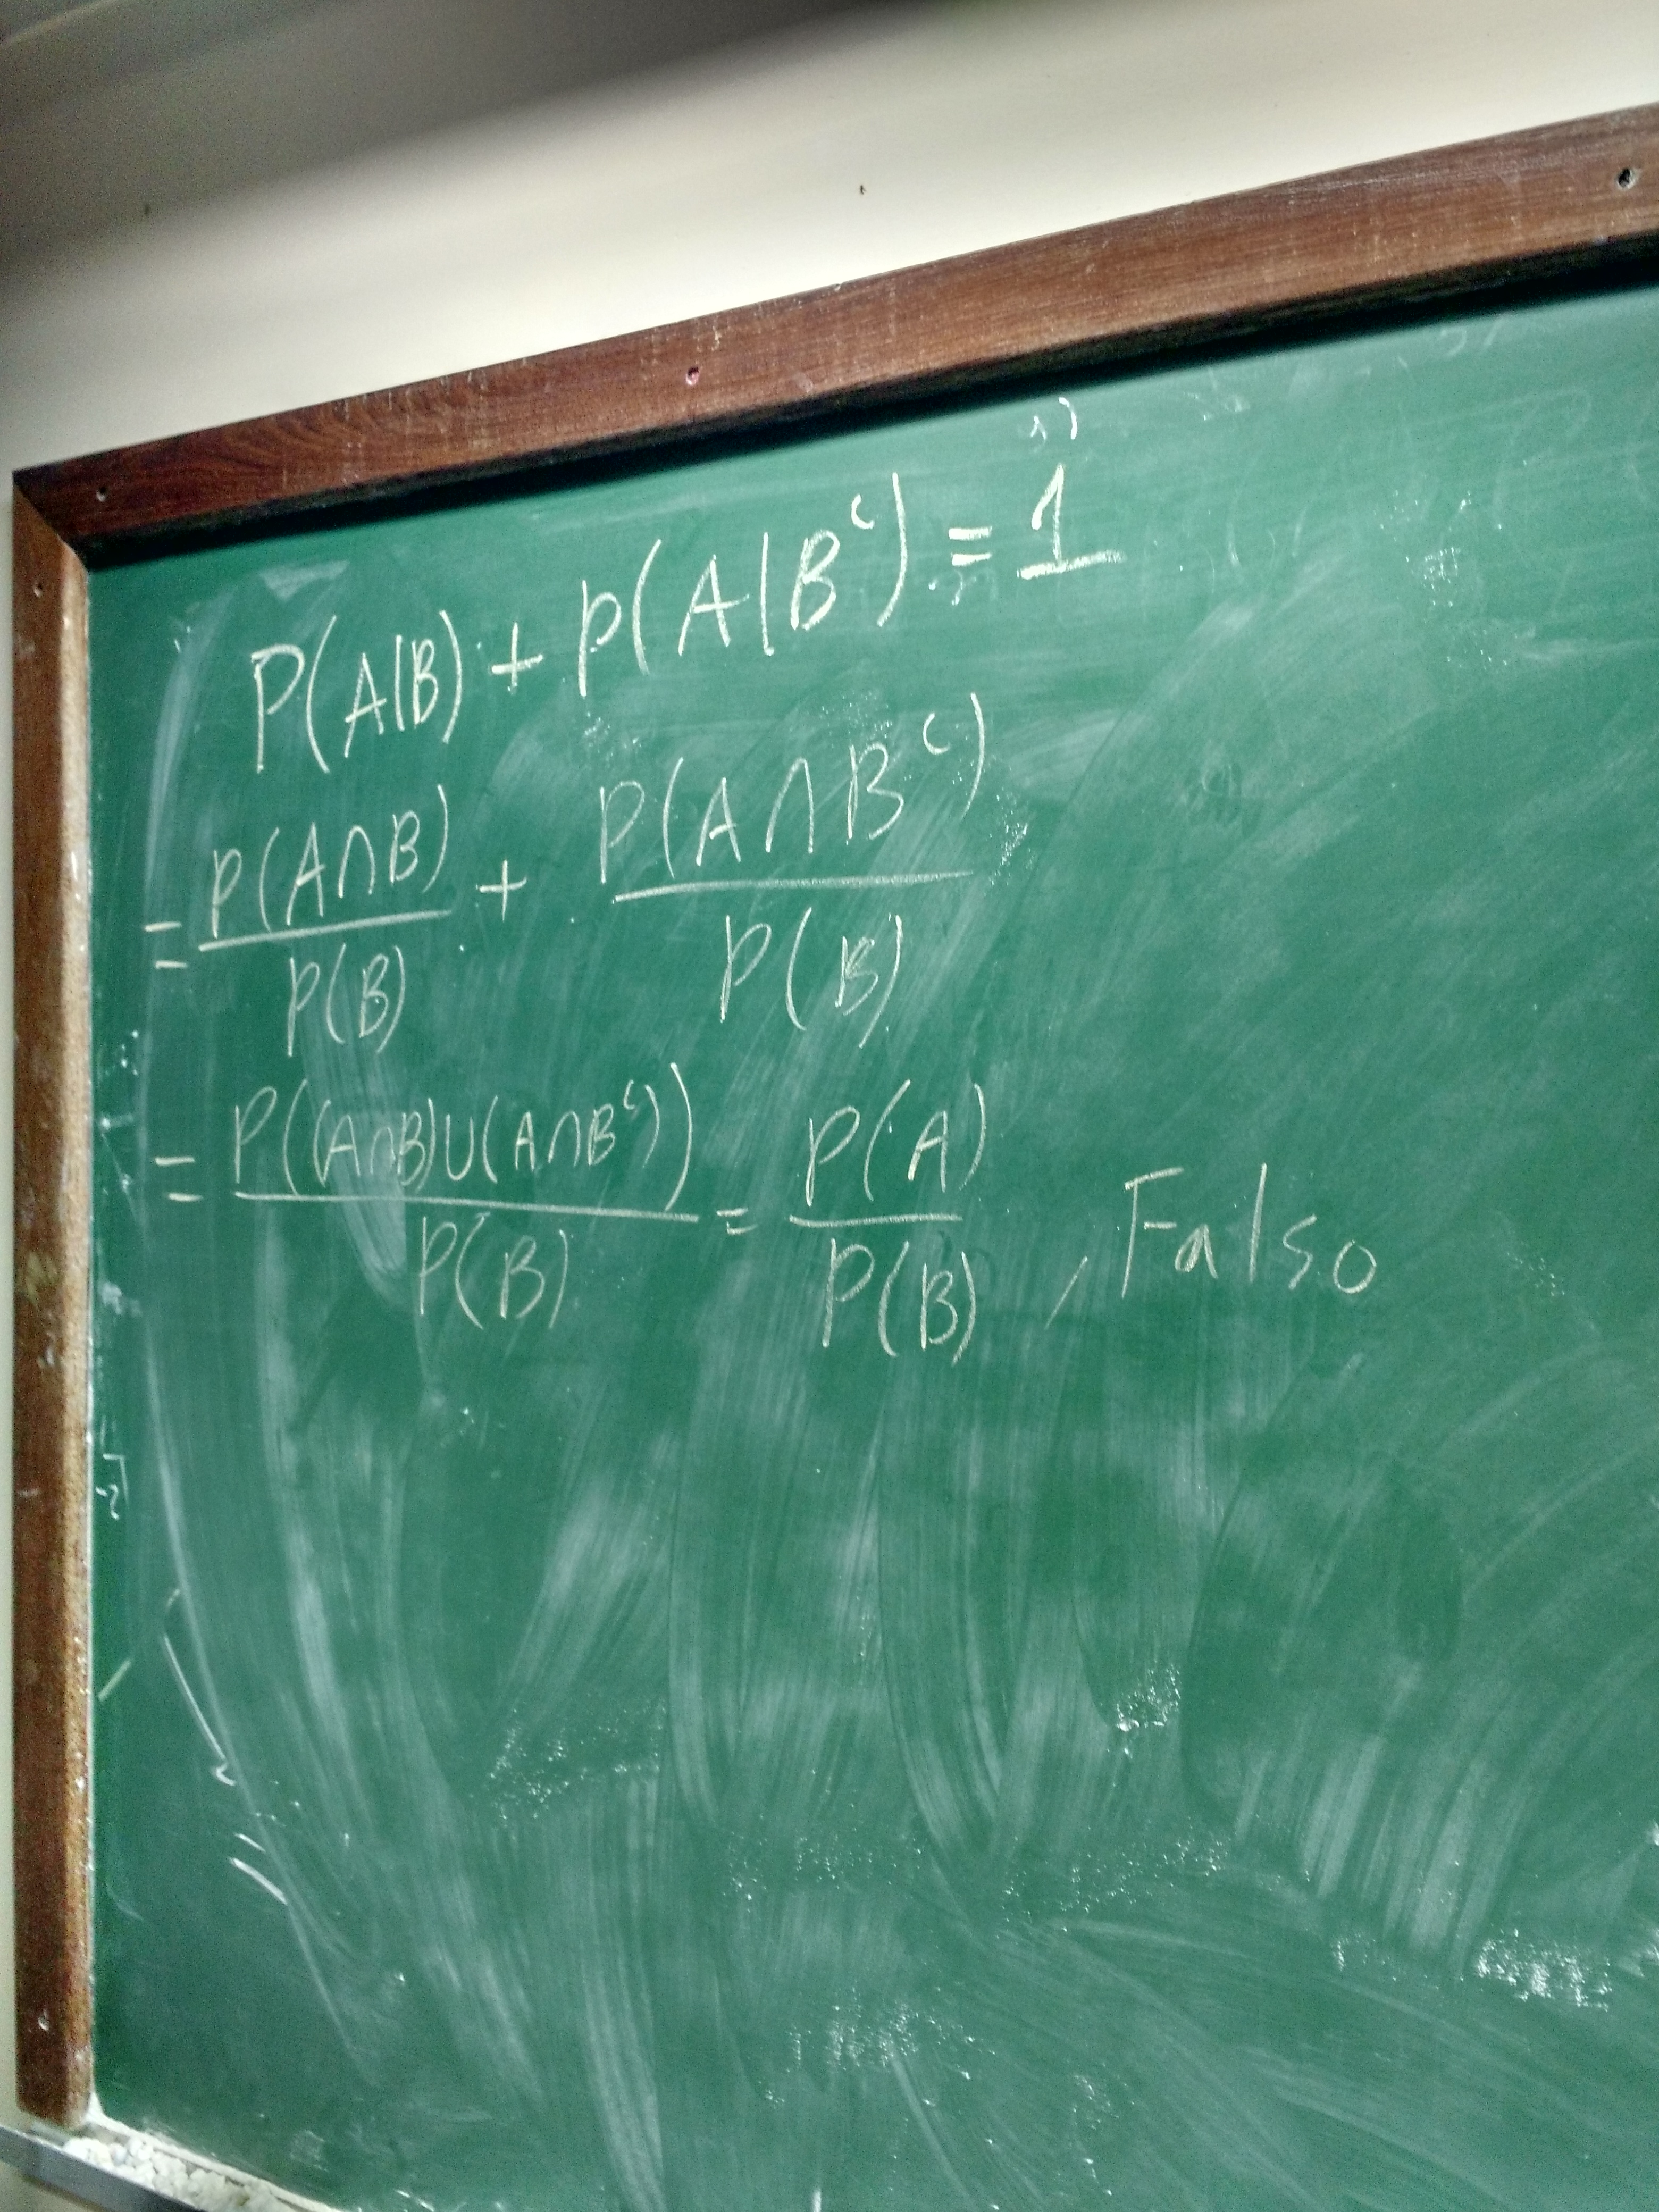 P(A|B) + P(A|Bᶜ) = 1
= P(A∩B)/P(B) + P(A∩Bᶜ)/P(B)
= P((A∩B)∪(A∩Bᶜ))/P(B) = P(A)/P(B) , Falso